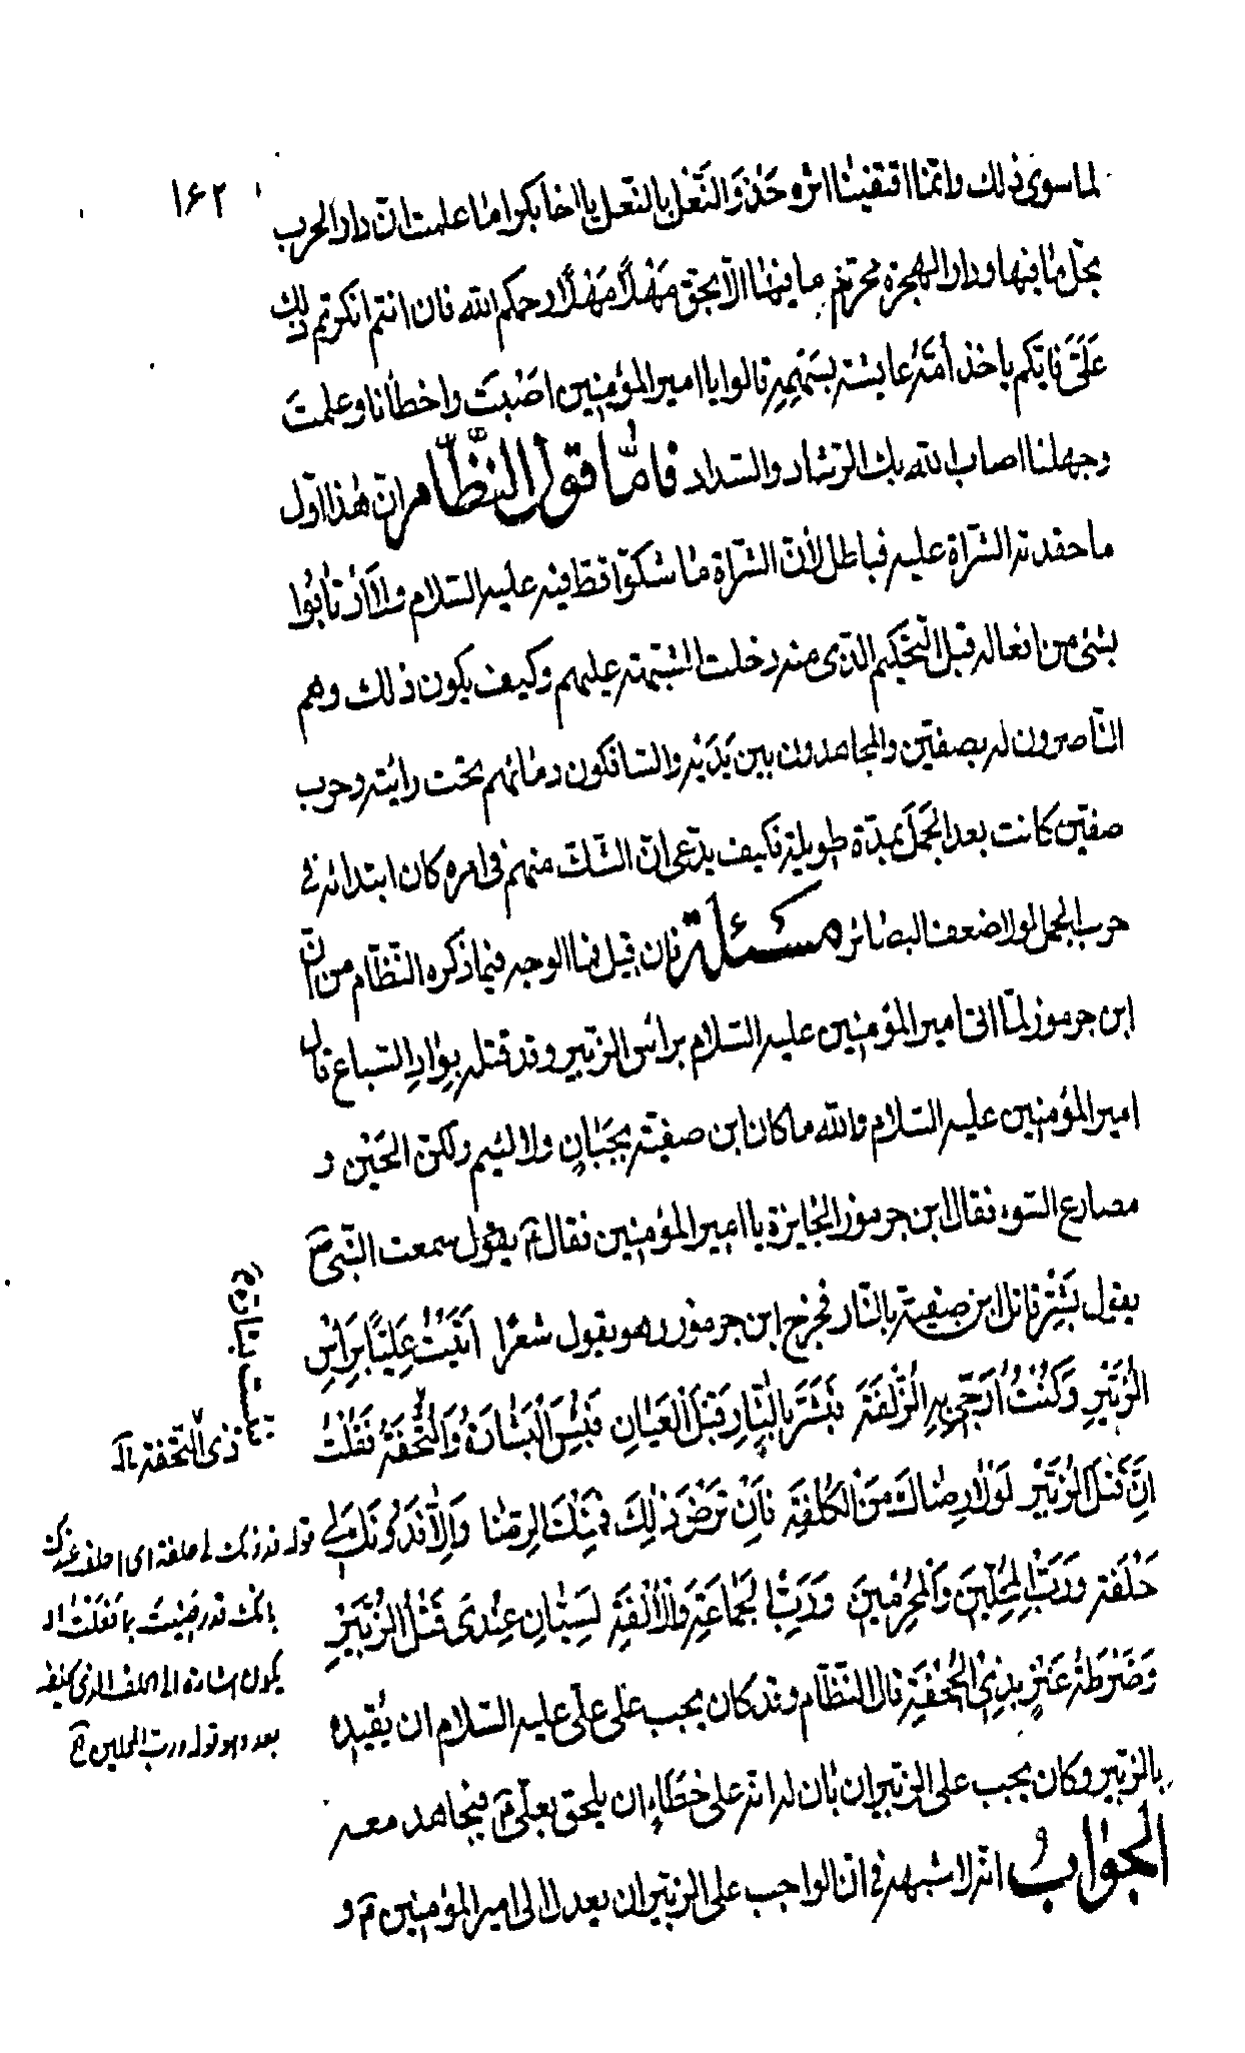 ١۶٢
لما سوى ذلك وانّما اقتفينا اثره حَذْوَ النَّعْل بالنّعل يا اخا بكر اما علمت انّ دار الحرب
يحّل ما فيها و دار الهجرة محرّم ما فيها الّا بحق مَهْلًا مَهْلًا رحمكم الله فان انتم انكرتم ذلك
عَلَىَّ فايّكم ياخذ اُمَّهُ عايشة بسَهْمِهِ قالوا يا امير المؤمنِين اصَبْتَ واخطأنا و علمتَ
وجهلنا اصاب الله بك الرّشاد والسّداد فامّا قول النظّام انّ هذا اوّل
ما حقدته الشّراة عليه فباطل لانّ الشّراة ما شكّوا قطّ فيه عليه السّلام ولا اَرْتابُوا
بشئ من افعاله قبل التّحكيم الذّى منه دخلت الشّبهة عليهم وكيف يكون ذلك وهم
النّاصرون له بصفّين والمجاهدون بين يَدَيْه والسّافكون دمائهم تحت رايته وحرب
صفّين كانت بعد الجَمَل بمدّة طويلة فكيف يدّعى انّ الشّكّ منهم فى امره كان ابتدائه فى
حرب الجمل لولا ضعف البصائر مسئلة فان قيل فما الوجه فيما ذكره النّظّام من انّ
ابن جرموز لمّا اتى امير المؤمنِين عليه السّلام برأس الزّبير وقد قتله بِوادِ السّباع قال
امير المؤمنِين عليه السّلام والله ما كان ابن صفيّة بجَبَانٍ ولا لئيم ولكن الحَيْن و
مصارع السّوء فقال ابن جرموز الجايزة يا امير المؤمنِين فقال ع يقول سمعت النّبى ص
يقول بَشِّر قاتل ابن صفيّة بالنّار فخرج ابن جرموز وهو يقول شعرًا اَتَيْتُ عَلِيًّا بِرَاْسِ
الزُّبَيْرِ وَكُنْتُ اُرَجّى بِهِ الزُّلْفَةَ فبَشَّرَ بالنَّارِ قَبْلَ العَيَانِ فَبِئْسَ الْبَشَارَةُ وَالتُّحْفَةُ فَقُلْتُ
اِنَّ قَتْلَ الزُّبَيْر لَوْلَا رِضاكَ مَنْ الكُلْفَةِ فَاَنْ تَرْضَ ذَلِكَ فمِنْكَ الرِضا وَاِلّا فَدُونَكَ لِى
حَلْفَة ورَبِّ المُحِلّينَ وَالمُحْرِمينَ وَرَبِّ الجَماعَةِ وَالْاُلْفَةِ لَسِيّانِ عِنْدى قَتْلُ الزُّبَيْرِ
وَضَرْطَةُ عَنْزٍ بِذِى الجُحْفَةِ قال النّظّام وقد كان يجب على علىّ عليه السّلام ان يُقيده
بالزّبير وكان يجب على الزّبير ان بان له انّه على خَطَاءٍ ان يلحق بعلىّ ع فيجاهد معه
الجواب انّه لا شبهة فى انّ الواجب على الزّبير ان يعدل الى امير المؤمنِين ع و
ذى التّحفة
قوله فدونك لى حلفة اى احلف عندك
بانّك قد رضيت بما فعلت
يكون اشارة الى الحلف الذى كيفه
بعد وهو قوله ورب المحلين